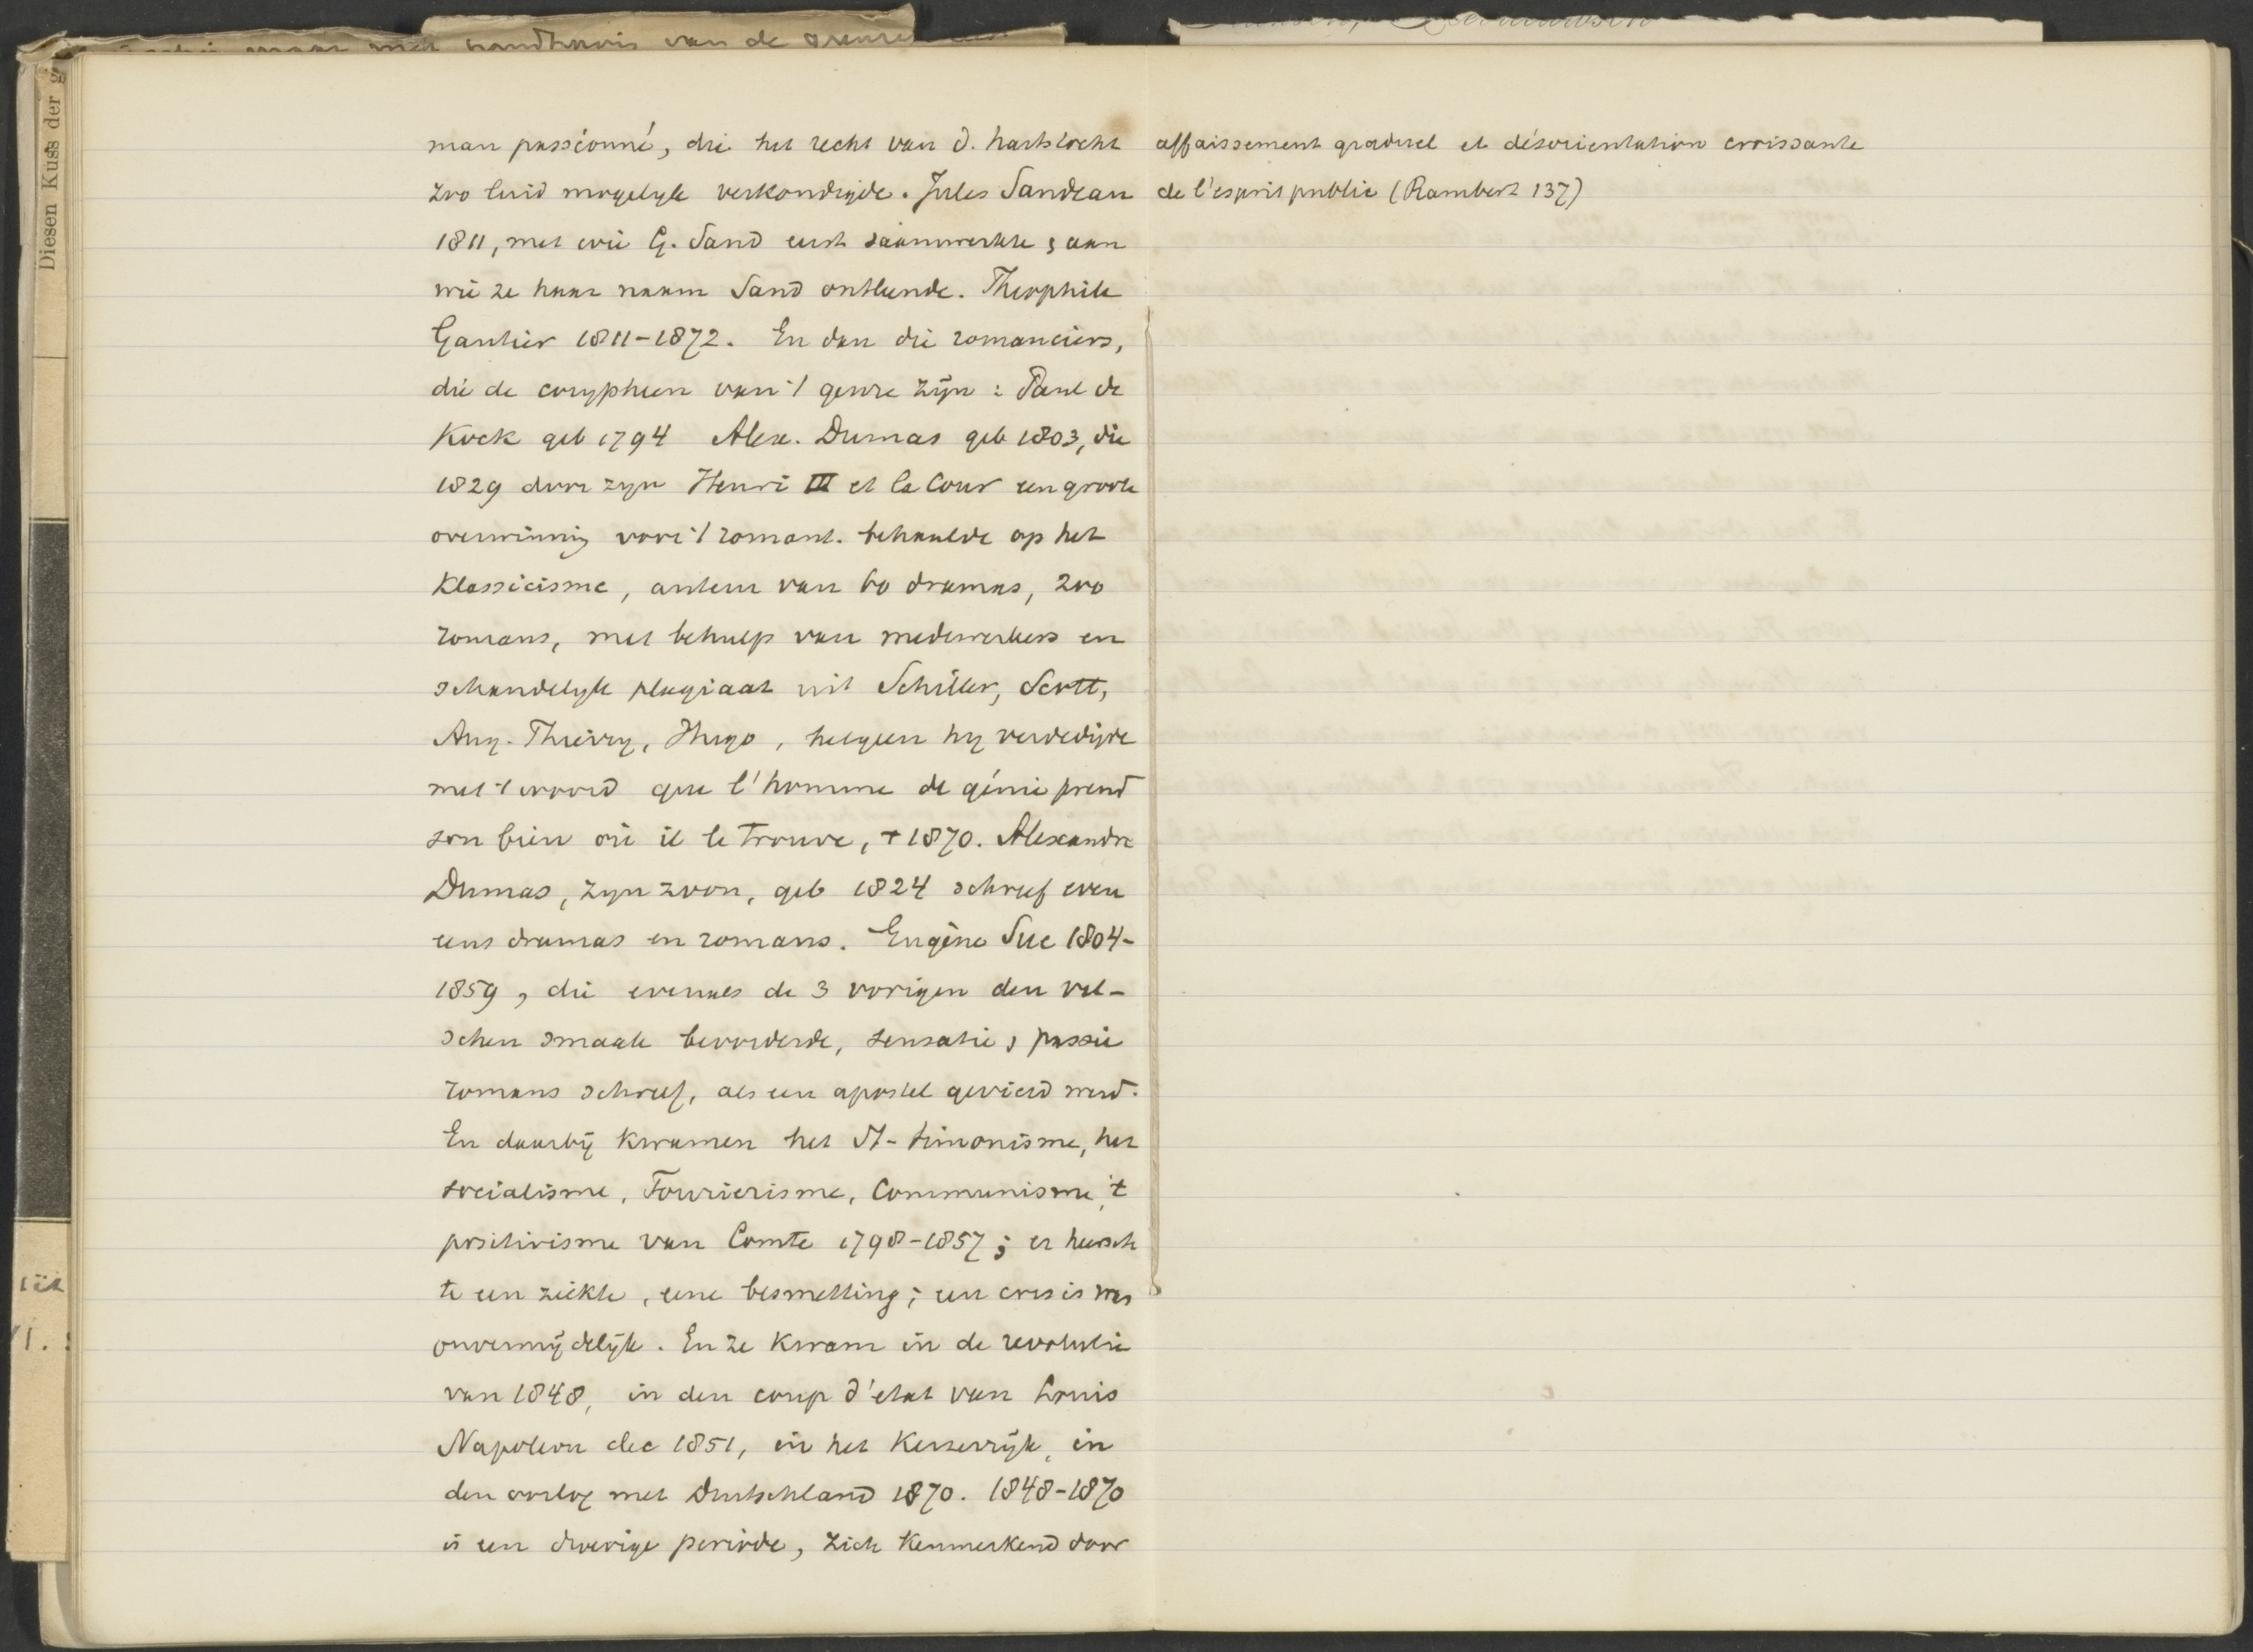 maar met handhavis van de grense
Diesen Kuss der g
man passionné, die het recht van d. hartstocht
zoo luid mogelyk verkondigde. Jules Sandeau
1811, met wie G. Sand eerst saamwerkte & aan
wie ze haar naam Sand ontleende. Theophile
Gautier 1811-1872. En dan die romanciers,
die de corypheen van 't genre zijn : Paul de
Kock geb 1794 Alex. Dumas geb 1803, die
1829 door zyn Henri III et la Cour een groote
overwinning voor 't romant. behaalde op het
Klassicisme, auteur van 60 dramas, 200
romans, met behulp van medewerkers en
schandelyk plagiaat uit Schiller, Scott,
Aug. Thierry, Hugo, hetgeen hy verdedigde
met 't woord que l'homme de génie prend
son bien où il le trouve, + 1870. Alexandre
Dumas, zyn zoon, geb 1824 schreef even
eens dramas en romans. Eugène Sue 1804-
1859, die evenals de 3 vorigen den val-
schen smaak bevorderde, sensatie & passie
romans schreef, als een apostel gevierd werd.
En daarbij kwamen het St-simonisme, het
socialisme, Fourierisme, Communisme, 't
positivisme van Comte 1798-1857; er heersch
te een ziekte, eene besmetting; een crisis was
onvermijdelijk. En ze kwam in de revolutie
van 1848, in den coup d'etat van Louis
Napoleon dec 1851, in het Keizerrijk, in
den oorlog met Duitschland 1870. 1848-1870
is een droevige periode, zich kenmerkend door
affaissement graduel et désorientation croissante
de l'esprit public (Rambert 137)